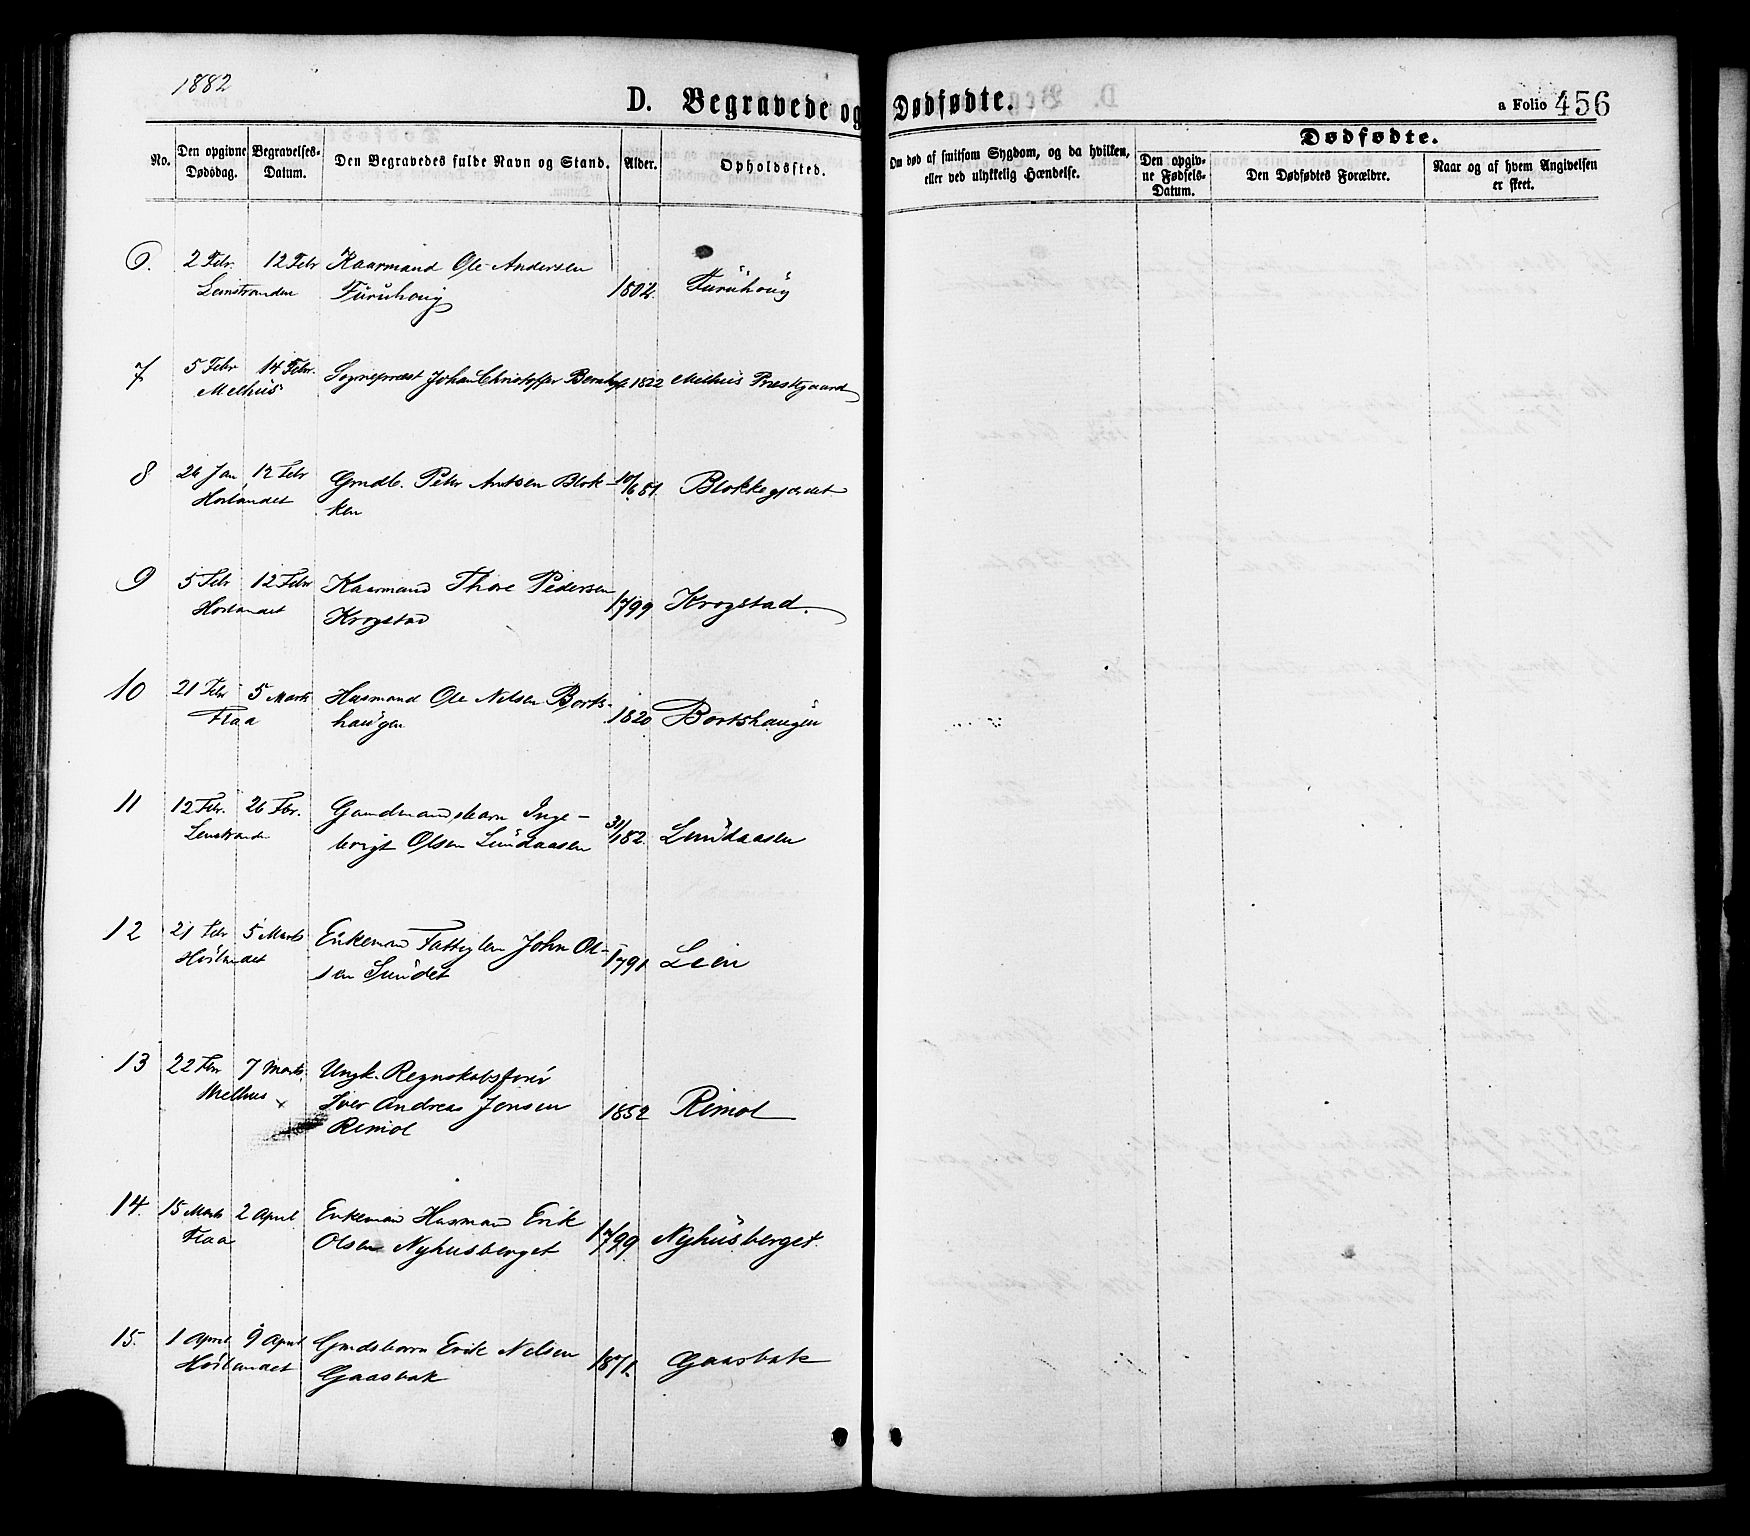 1882
D. Begravede og Dødfødte.
a Folio 456
Dødfødte.
No.
Den opgivne Dødsdag.
Begravelses-Datum.
Den Begravedes fulde Navn og Stand.
Alder.
Opholdssted.
Om død af smitsom Sygdom, og da hvilken,
eller ved ulykkelig Hændelse.
Den opgiv-
ne Fødsels-
Datum.
Den Dødfødtes Forældre.
Naar og af hvem Angivelsen
er skeet.
6. 2 Febr. 12 Febr Kaarmand Ole Andersen
Leinstranden Furuhoug 1802. Furuhoug
7 5 Febr 14 Febr. Sognepræst Johan Christoffer 1822 Melhus Præstgaard
Melhus
8 26 Jan 12 Febr Grndb. Peter Antsen Blok- 10/6 81. Blokkegjærdet
Høilandet ken
9 5 Febr 12 Febr Kaarmand Thore Pedersen
Høilandet Krogstad 1799 Krogstad
10 21 Febr 5 Marts Husmand Ole Nilsen Borts-
Flaa haugen 1820 Bortshaugen
11 12 Febr. 26 Fbr. Inge-
Leinstranden brigt Olsen Lundaasen 31/1 82. Lundaasen
12 21 Febr 5 Marts Enkemand Fattiglem John Ol-
Høilandet sen Sundet 1791 Lein
13 22 Febr 7 Marts. Ungk. Regnskabsfører
Melhus x Iver Andreas Jensen 1852 Rimol
Rimol
14. 15 Marts 2 April Enkemand Husmand Erik
Flaa Olsen Nyhusberget 1799 Nyhusberget.
15. 1 April 9 April Gmdsbarn Erik Nilsen
Høilandet Gaasbak 1871. Gaasbak